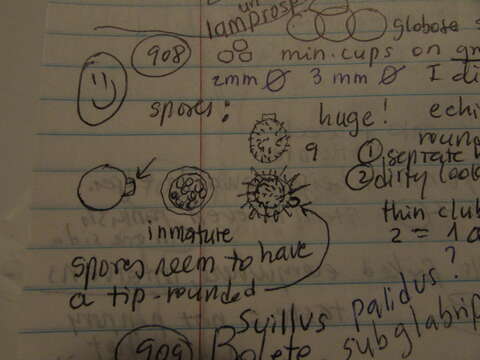 un
lamprosp
globose
908
min. cups on
2mm ∅ 3 mm ∅ I di
spores: huge! echi
9 round
① seprate
② dirty look
inmature thin club
spores seem to have 2 = 1 a
a tip-rounded
Syillus palidus?
909 Bolete subglabrip